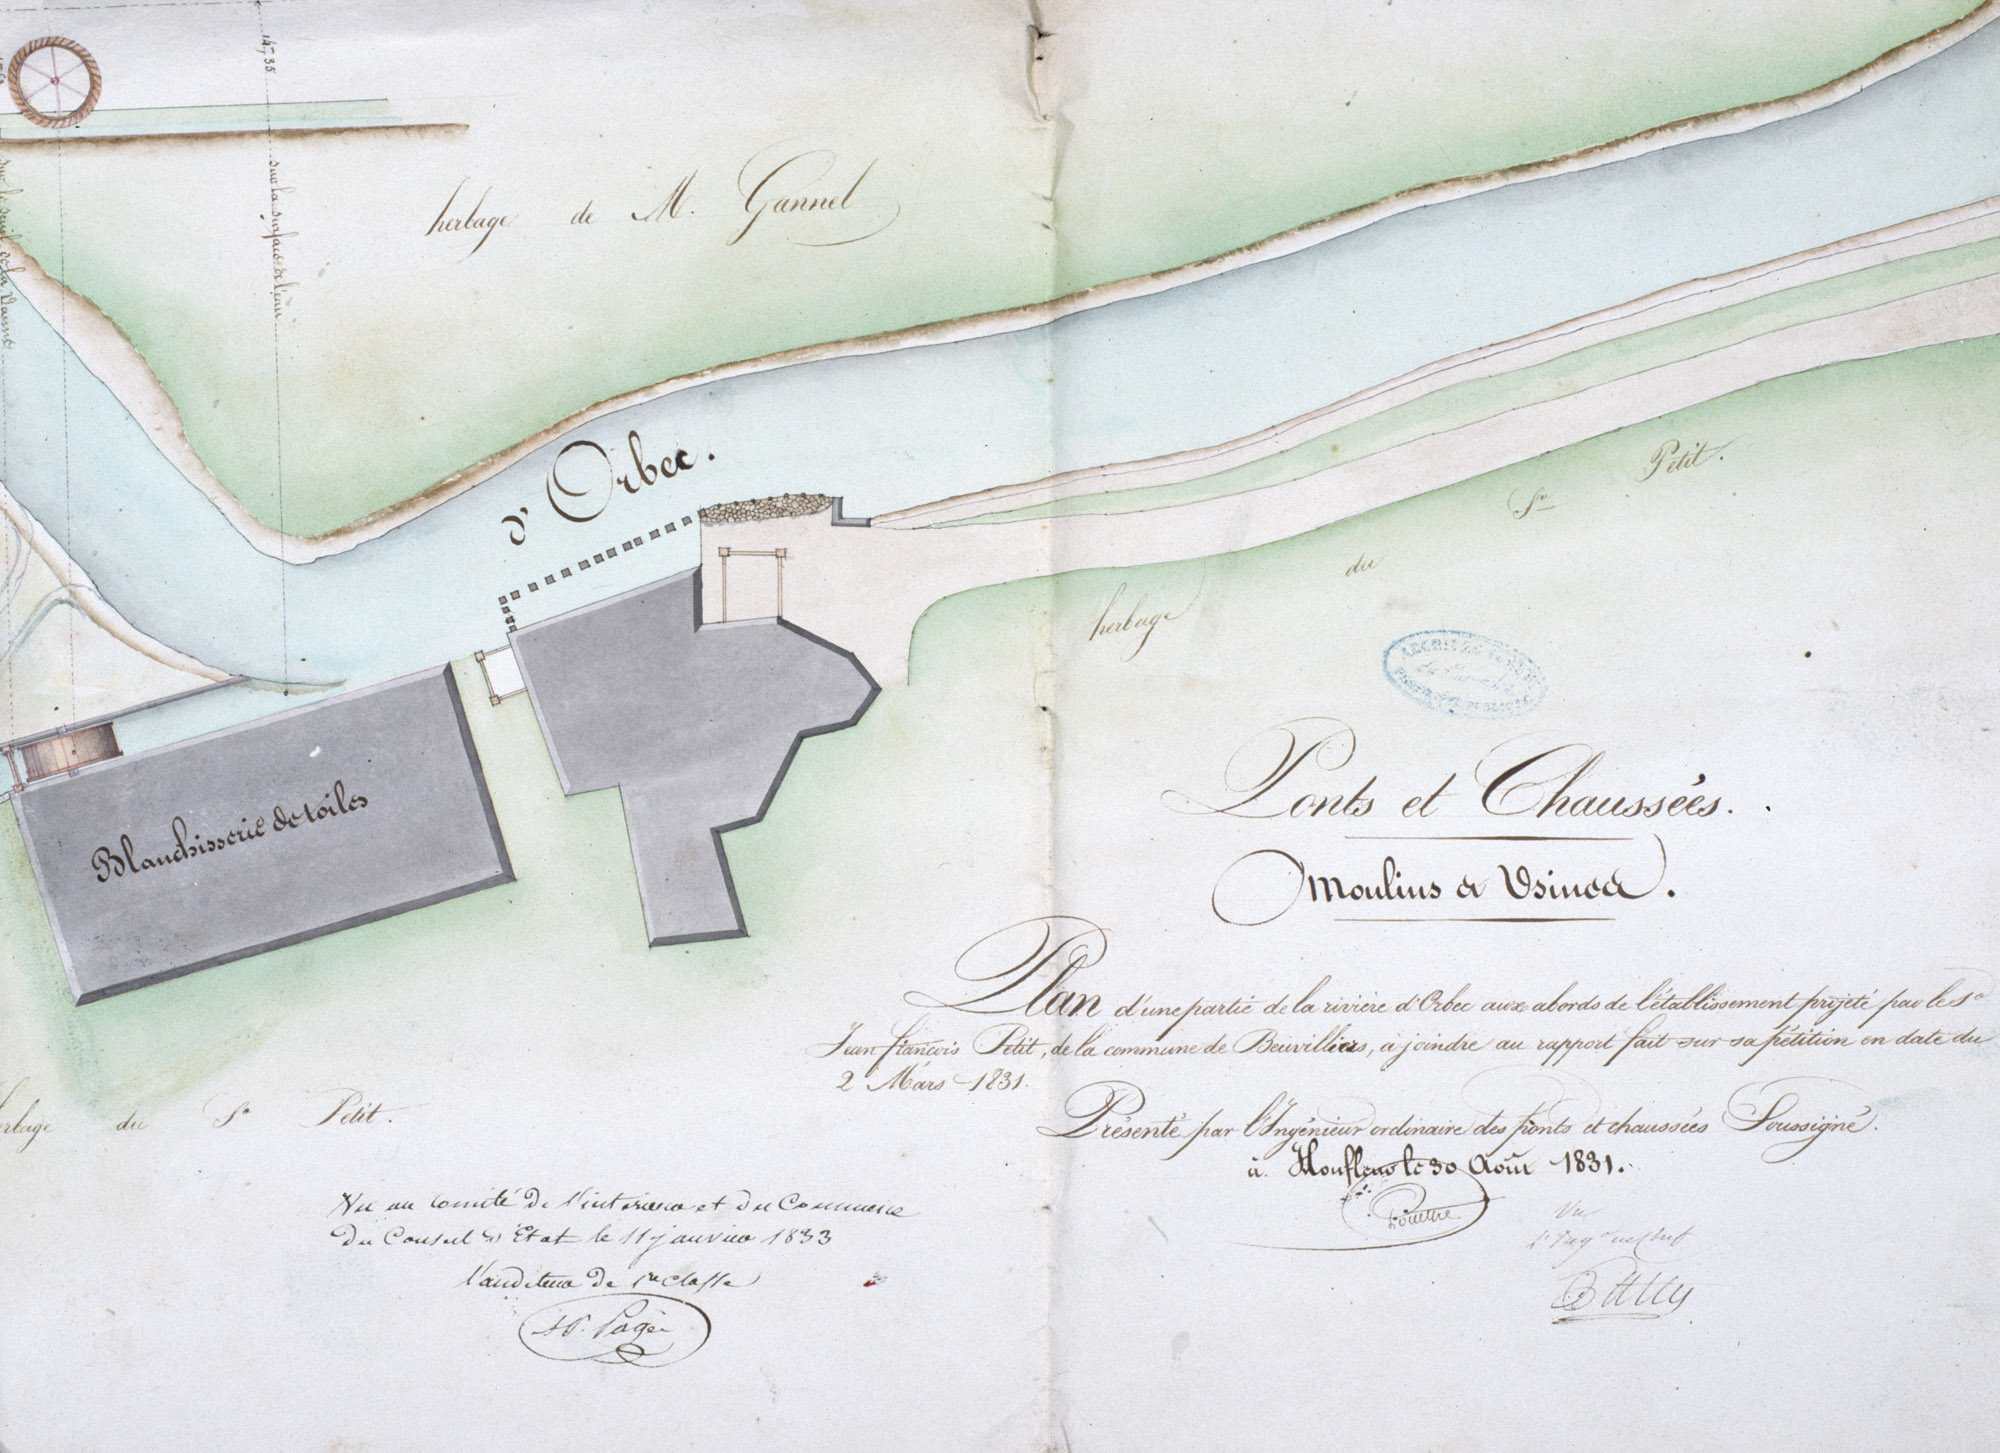 14,35
sur la surface de l'eau
herbage de M. Gannel
d'Orbec.
herbage du Sr Petit.
Blanchisserie de toiles
Ponts et Chaussées.
Moulins et Usines.
Plan d'une partie de la rivière d'Orbec aux abords de l'établissement projeté par le Sr
Jean françois Petit, de la commune de Beuvilliers, à joindre au rapport fait sur sa pétition en date du
2 Mars 1831.
Présenté par l'Ingénieur ordinaire des ponts et chaussées Soussigné.
à Honfleur le 30 Août 1831.
Vu
l'Ingr en Chef
herbage du Sr Petit.
Vu au comité de l'intérieur et du Commerce
du Conseil d'Etat le 11 janvier 1833
l'auditeur de 1re classe